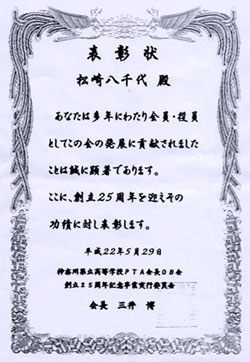 表彰状
松崎八千代 殿
あなたは多年にわたり会員・役員
としてこの会の発展に貢献されました
ことは誠に顕著であります。
ここに、創立25周年を迎えその
功績に対し表彰します。
平成22年5月29日
神奈川県立高等学校PTA会長OB会
創立25周年記念事業実行委員会
会長 三井 博